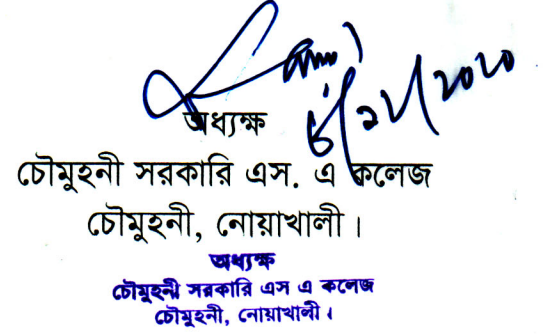 অধ্যক্ষ
চৌমুহনী সরকারি এস. এ কলেজ
চৌমুহনী, নোয়াখালী।
অধ্যক্ষ
চৌমুহনী সরকারি এস এ কলেজ
চৌমুহনী, নোয়াখালী।